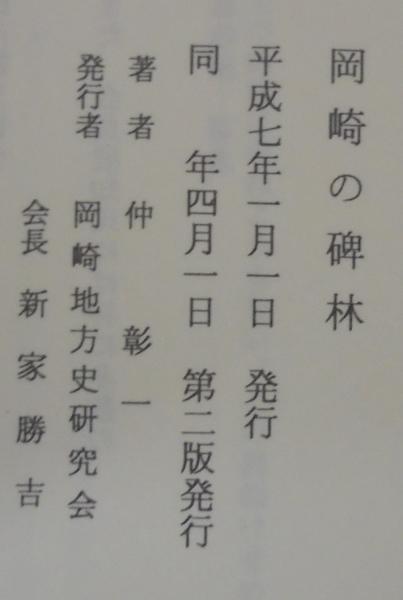 岡崎の碑林
平成七年一月一日 発行
同 年四月一日 第二版発行
著者 仲 彰一
発行者 岡崎地方史研究会
会長 新家勝吉